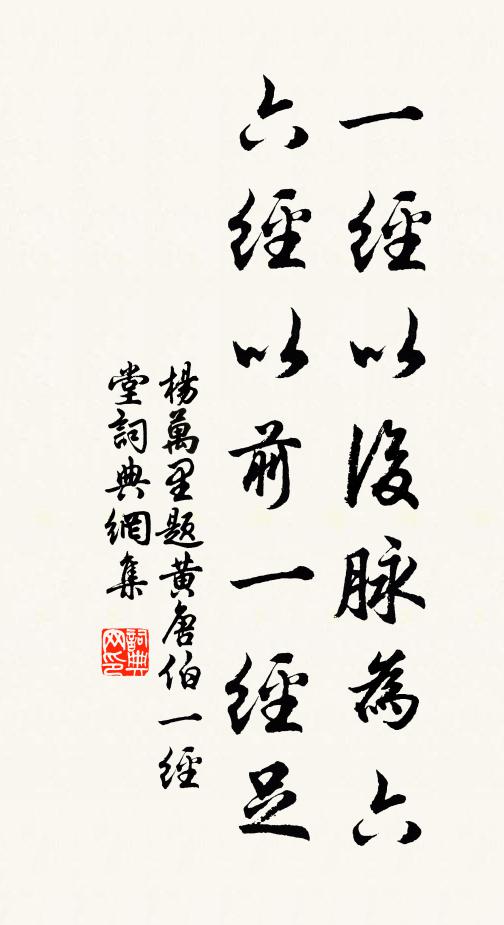 一經以後脉為六
六經以前一經足
楊萬里題黄唐伯一經
堂詞典網集
詞典
网印